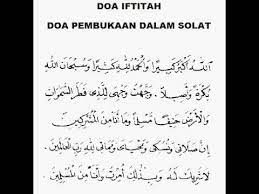 DOA IFTITAH
DOA PEMBUKAAN DALAM SOLAT
اَللهُ أَكْبَرُ كَبِيْرًا وَالْحَمْدُ لِلّٰهِ كَثِيْرًا وَسُبْحَانَ اللهِ
بُكْرَةً وَأَصِيْلًا . وَجَّهْتُ وَجْهِيَ لِلَّذِيْ فَطَرَ السَّمٰوَاتِ
وَالْأَرْضَ حَنِيْفًا مُسْلِمًا وَمَا أَنَا مِنَ الْمُشْرِكِيْنَ
إِنَّ صَلَاتِيْ وَنُسُكِيْ وَمَحْيَايَ وَمَمَاتِيْ لِلّٰهِ رَبِّ الْعَالَمِيْنَ .
لَا شَرِيْكَ لَهُ وَبِذٰلِكَ أُمِرْتُ وَأَنَا مِنَ الْمُسْلِمِيْنَ